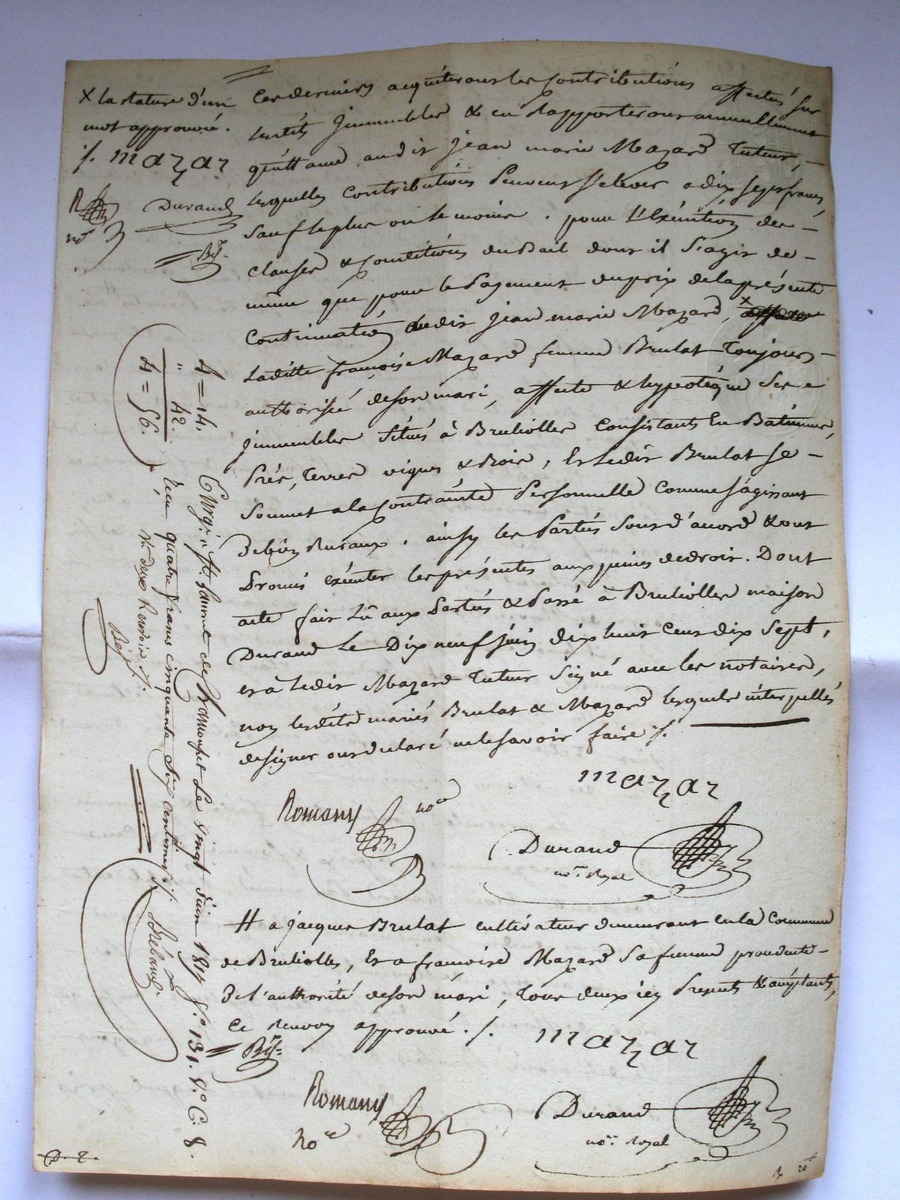 X la rature d'un
mot approuvé.
/. mazar
Durand
R
no.re
Bf.
Ces derniers acquiterons les Contributions affectés sur
lesdits jmmeubles & en Rapporterons annuellement
quittance audit jean marie Mazard Tuteur, -
lesquelles Contributions Peuvent s'elever a dix sept francs
sauf le plus ou le moins. pour l'Exécution des -
clauses & conditions du Bail dont il s'agit de -
même que pour le Payement du prix de la présente
Continuation ledit jean marie Mazard, X
Ladite françoise Mazard femme Brulat Toujours -
authorisée de son mari, affecte & hypotéque ses
jmmeubles situés à Brulliolles Consistants En Batiments,
Prés, Terres vignes & Bois, Et ledit Brulat se -
soumet a la Contrainte Personnelle comme s'agissant
De biens Ruraux. ainsy les Parties sont d'accord & ont
Promis exécuter les présentes aux peines de droit. Dont
acte fait Lû aux Parties & Passé à Brulliolles maison
Durand Le Dix neuf juin dix huit Cent dix Sept,
et a ledit Mazard Tuteur Signé avec les notaires,
non lesdits mariés Brulat & Mazard lesquels interpellés
de signer ont déclaré ne le savoir faire /.
mazar
Romany no.re
Durand
no.re Royal
# a jacques Brulat cultivateur demeurant en la Commune
de Brulliolles, Et a françoise Mazard sa femme procédante -
De l'authorité de son mari, Tous deux icy Presents & acceptants,
Ce renvoy approuvé. /.
mazar
Bf.
Romany
no.re
Durand
no.re Royal
4 = 14.
" 42.
4 = 56.
Enrg.é à St Laurent de Chamousset Le vingt juin 1817 f.o 131. v.o C. 8.
Reçu quatre francs cinquante six centimes /.
deux Renvois /.